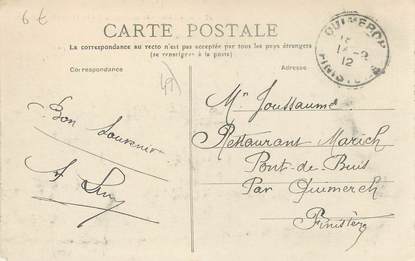 6 €
CARTE POSTALE
La correspondance au recto n'est pas acceptée par tous les pays étrangers
(se renseigner à la poste)
Correspondance
Adresse
QUIMERCH
12
FINISTERE
Bon Souvenir
Mr Joussaume
Restaurant Marich
Pont-de-Buis
Par Quimerch
Finistère